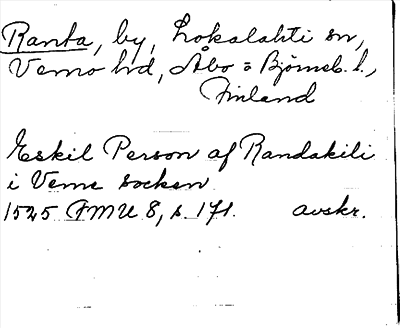 Ranta, by, Lokalahti sn,
Vemo hd, Åbo = Björneb. l.,
Finland
Eskil Person af Randakili
i Veme socken
1525 FMU 8, s. 171. avskr.